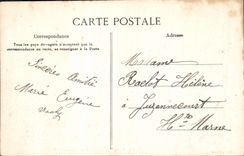 CARTE POSTALE
Correspondance
Adresse
Tous les pays étrangers n'acceptent pas la
correspondance au recto, se renseigner à la Poste
Madame
Rachot Hélène
à Juzennecourt
Hte Marne
Sincères Amitiés
Marie Eugène